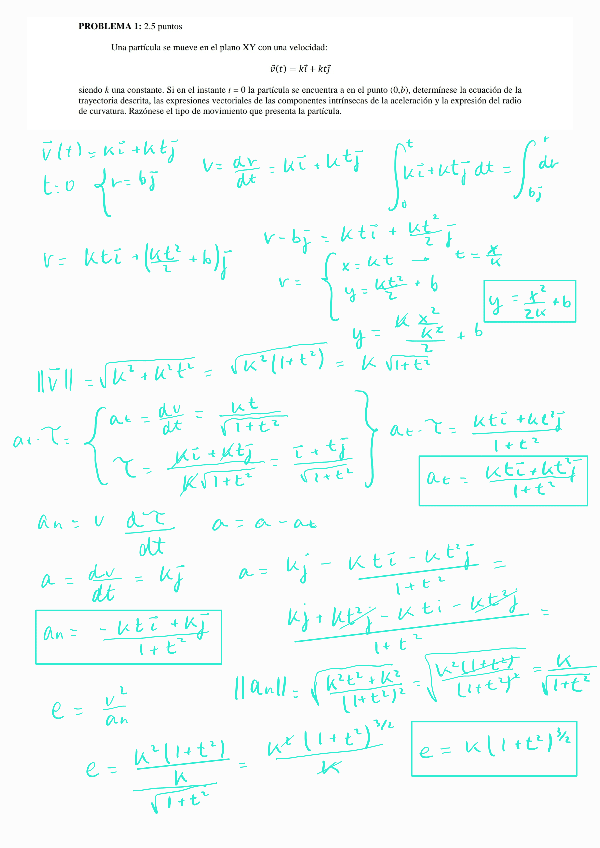 PROBLEMA 1: 2.5 puntos
Una partícula se mueve en el plano XY con una velocidad:
v̄(t) = kī + ktj̄
siendo k una constante. Si en el instante t = 0 la partícula se encuentra a en el punto (0,b), determínese la ecuación de la
trayectoria descrita, las expresiones vectoriales de las componentes intrínsecas de la aceleración y la expresión del radio
de curvatura. Razónese el tipo de movimiento que presenta la partícula.
v̄(t) = kī + ktj̄
t=0 { r = bj̄
v = dr/dt = kī + ktj̄
∫₀ᵗ kī + ktj̄ dt = ∫_{bj̄}^r dr
r - bj̄ = ktī + kt²/2 j̄
r = ktī + (kt²/2 + b)j̄
r = { x = kt → t = x/k
y = kt²/2 + b
y = x²/2k + b
y = k x²/k²/2 + b
||v̄|| = √k² + k²t² = √k²(1+t²) = k √1+t²
at·τ = { at = dv/dt = kt/√1+t²
τ = kī + ktj̄/k√1+t² = ī + tj̄/√1+t² }
at·τ = ktī + kt²j̄/1+t²
at = ktī + kt²j̄/1+t²
an = v dτ/dt
a = a - at
a = dv/dt = kj̄
a = kj̄ - ktī - kt²j̄/1+t² =
kj + kt²j - ktī - kt²j/1+t² =
an = -ktī + kj̄/1+t²
||an|| = √k²t² + k²/(1+t²)² = √k²(1+t²)/(1+t²)² = k/√1+t²
e = v²/an
e = k²(1+t²)/k/√1+t² = k²(1+t²)^3/2/k
e = k(1+t²)^3/2